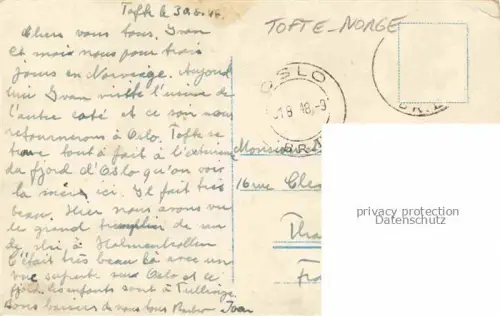 Tofte le 30.6.48
TOFTE-NORGE
Chers vous tous, Ivan
et moi nous pour trois
jours en Norvège. Aujourd
hui Ivan visite l'usine de
l'autre côté et ce soir nous
retournerons à Oslo. Tofte se
trouve tout à fait à l'extérieur
du fjord d'Oslo qu'on voit
la mer ici. Il fait très
beau. Hier nous avons vu
le grand tremplin de saut
de ski, à Holmenkollen
C'était très beau là avec un
vue superbe sur Oslo et ce
fjord. les enfants sont à Tullinge
Bons baisers de nous tous Ivan
OSLO
18 48.-9
BR.
BR.
Monsieur
16 rue
Tha
Fra
privacy protection
Datenschutz